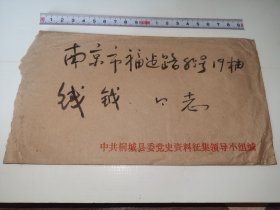 南京市福建路　号19栋
线　钺　同志
中共桐城县委党史资料征集领导小组缄